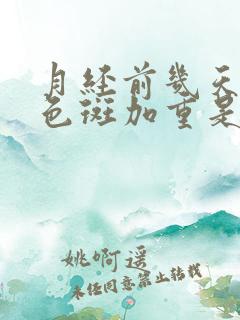 月经前几天
色斑加重是
姚啊遥
未经同意禁止转载